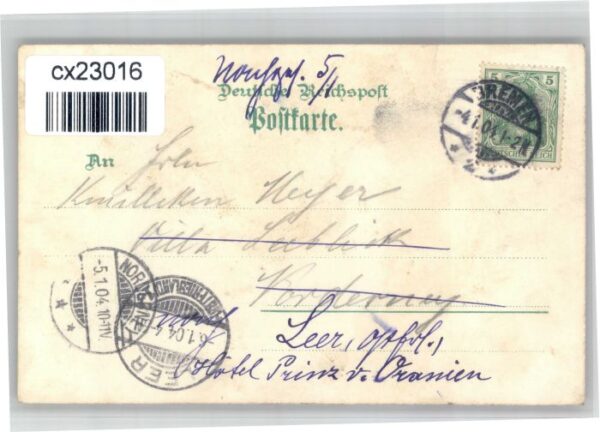 cx23016
Nachges. 5/1
Deutsche Reichspost
Postkarte.
5 5
BREMEN
4.1.04. 1-2N.
An Frln
Meyer
Villa
Norderney
NORDERNEY
5.1.04. 10-11V
LEER
(OSTFRIESLAND)
nach
Leer, ostfrl.,
Hotel Prinz v. Oranien